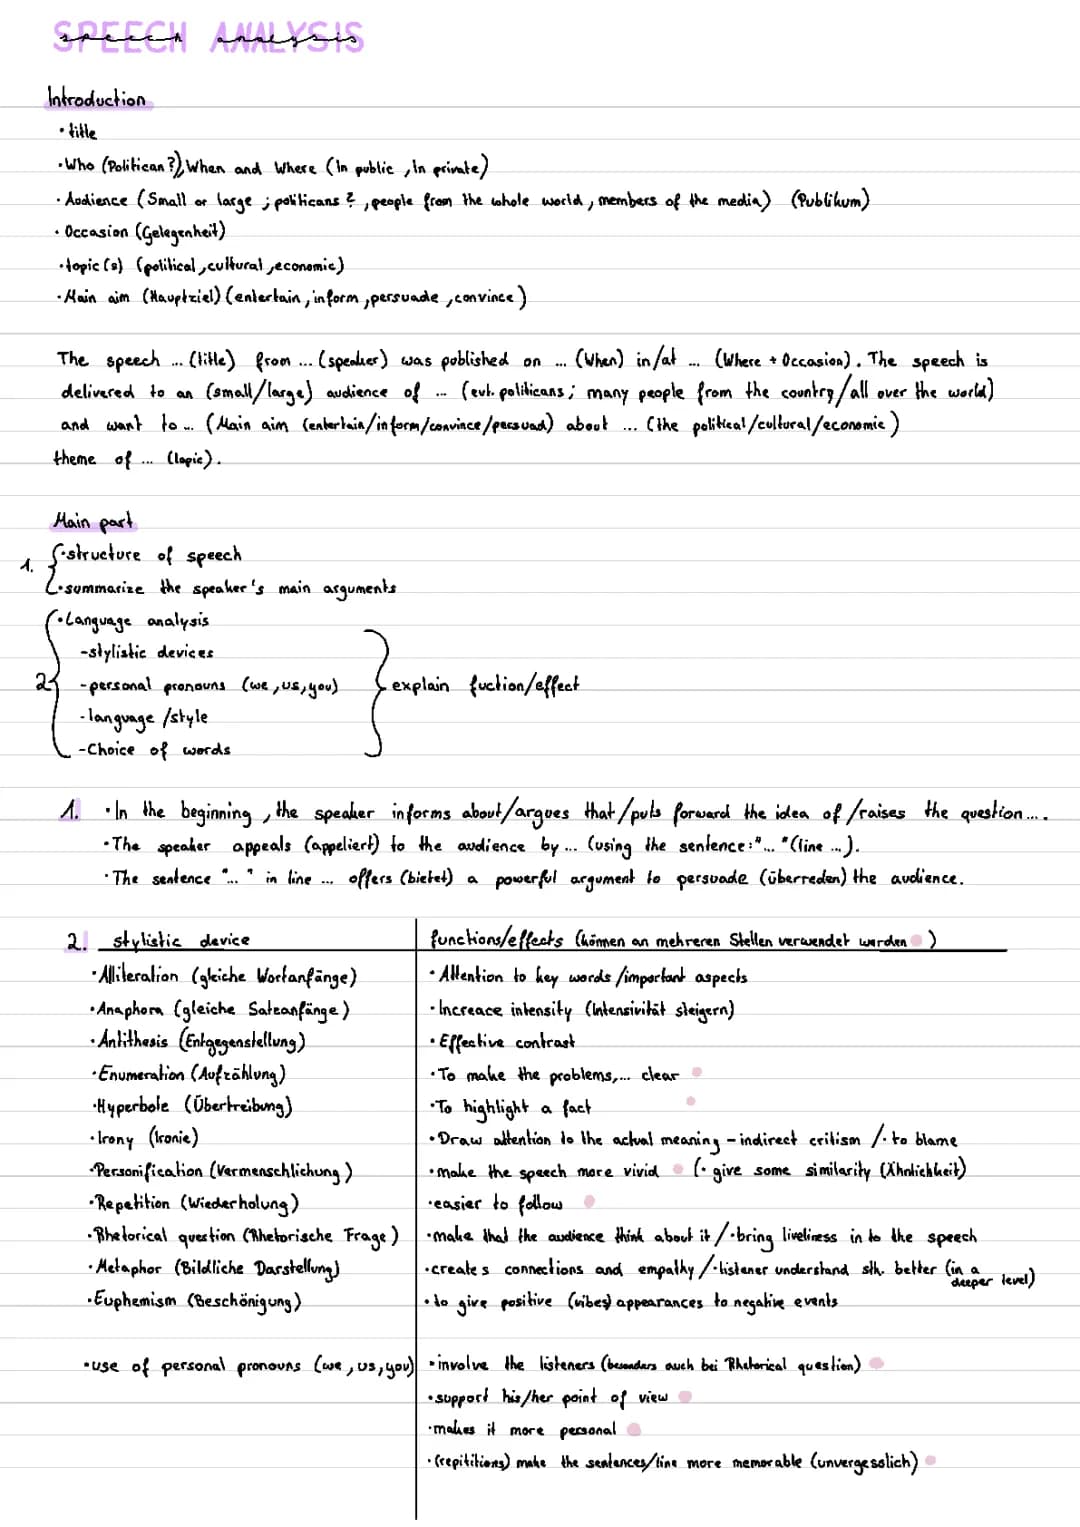 SPEECH ANALYSIS
speech analysis
Introduction
• title
• Who (Politican?), When and Where (In public, In private)
• Audience (Small or large; politicans?, people from the whole world, members of the media) (Publikum)
• Occasion (Gelegenheit)
• topic(s) (political, cultural, economic)
• Main aim (Hauptziel) (entertain, inform, persuade, convince)
The speech ... (title) from ... (speaker) was published on ... (When) in/at ... (Where + Occasion). The speech is
delivered to an (small/large) audience of ... (evt. politicans; many people from the country/all over the world)
and want to ... (Main aim (entertain/inform/convince/persuad) about ... (the political/cultural/economic)
theme of ... (topic).
Main part
1. • structure of speech
• summarize the speaker's main arguments
2. • Language analysis
- stylistic devices
- personal pronouns (we, us, you) explain fuction/effect
- language /style
- Choice of words
1. • In the beginning, the speaker informs about/argues that/puts forward the idea of /raises the question ....
• The speaker appeals (appeliert) to the audience by ... (using the sentence: "... "(line ...).
• The sentence "..." in line ... offers (bietet) a powerful argument to persuade (überreden) the audience.
2. stylistic device functions/effects (können an mehreren Stellen verwendet werden )
• Alliteration (gleiche Wortanfänge) • Attention to key words /important aspects
• Anaphora (gleiche Satzanfänge) • Increace intensity (Intensivität steigern)
• Antithesis (Entgegenstellung) • Effective contrast
• Enumeration (Aufzählung) • To make the problems,... clear
• Hyperbole (Übertreibung) • To highlight a fact
• Irony (Ironie) • Draw attention to the actual meaning - indirect critism /• to blame
• Personification (Vermenschlichung) • make the speech more vivid (• give some similarity (Ähnlichkeit)
• Repetition (Wiederholung) • easier to follow
• Rhetorical question (Rhetorische Frage) • make that the audience think about it /• bring liveliness in to the speech
• Metaphor (Bildliche Darstellung) • creates connections and empathy /• listener understand sth. better (in a deeper level)
• Euphemism (Beschönigung) • to give positive (vibes) appearances to negative events
• use of personal pronouns (we, us, you) • involve the listeners (besonders auch bei Rhetorical question)
• support his/her point of view
• makes it more personal
• (repititions) make the sentences/line more memorable (unvergesslich)